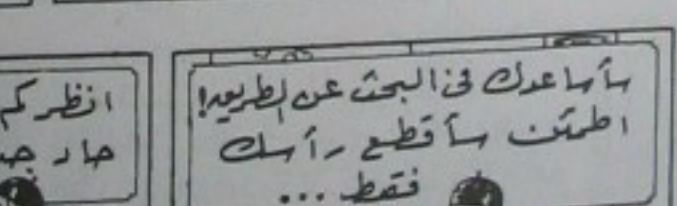 سأساعدك في البحث عن الطريد!
اطمئن سأقطع رأسك
فقط ...
انظركم
حاد